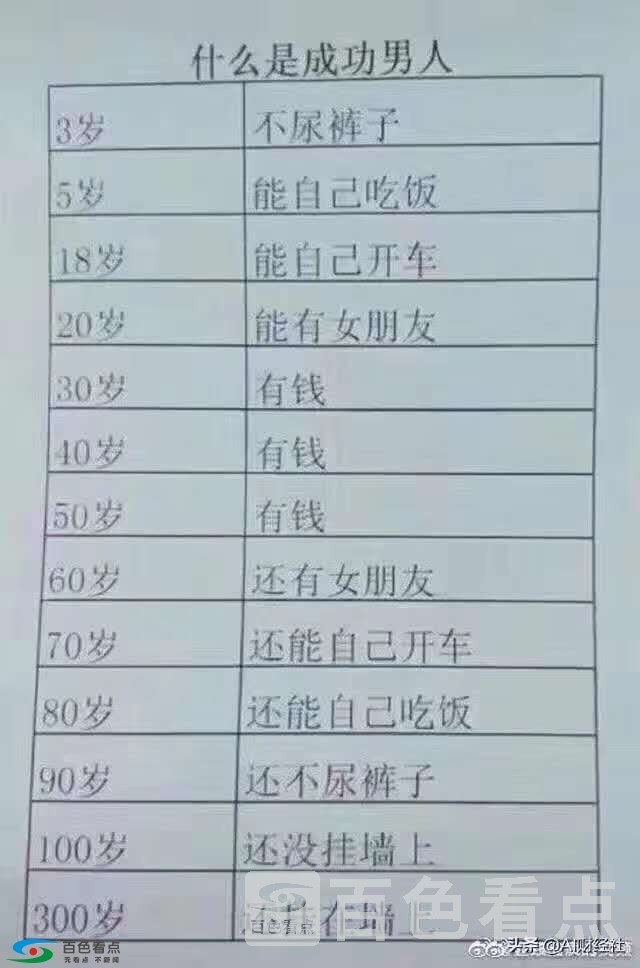 什么是成功男人
3岁 不尿裤子
5岁 能自己吃饭
18岁 能自己开车
20岁 能有女朋友
30岁 有钱
40岁 有钱
50岁 有钱
60岁 还有女朋友
70岁 还能自己开车
80岁 还能自己吃饭
90岁 还不尿裤子
100岁 还没挂墙上
300岁 还挂在墙上
百色看点
百色看点
百色看点
无看点 不新闻
头条@A1财经社